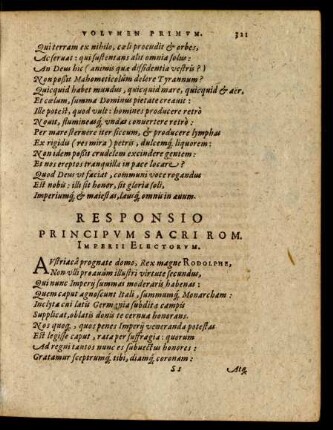 VOLVMEN PRIMVM. 321
Qui terram ex nihilo, cœli procudit & orbes,
Ac seruat: qui sustentans alit omnia solus:
An Deus hic (animis quæ diffidentia vestris?)
Non possit Mahometicolûm delere Tyrannum?
Quicquid habet mundus, quicquid mare, quicquid & aër,
Et cœlum, summa Dominus pietate creauit:
Ille poteit, quod vult: homines producere retrò
Nouit, flumineasq́; vndas conuertere retrò:
Per mare sternere iter siccum, & producere lymphas
Ex rigidis (res mira) petris, dulcemq́; liquorem:
Non idem possit crudelem excindere gentem:
Et nos ereptos tranquilla in pace locare?
Quod Deus vt faciat, communi voce rogandus
Est nobis: illi sit honor, sit gloria soli,
Imperiumq́; & maiestas, lausq́; omni in æuum.
RESPONSIO
PRINCIPVM SACRI ROM.
IMPERII ELECTORVM.
AVstriacâ prognate domo, Rex magne RODOLPHE,
Non vlli proauûm illustri virtute secundus,
Qui nunc Imperij summas moderaris habenas:
Quem caput agnoscunt Itali, summumq́; Monarcham:
Inclyta cui latis Germania subdita campis
Supplicat, oblatis donis te cernua honorans.
Nos quoq;, quos penes Imperij veneranda potestas
Est legisse caput, rata per suffragia: quorum
Ad regni tantos nunc es subuectus honores:
Gratamur sceptrumq́; tibi, diamq́; coronam:
Ss Atq́;